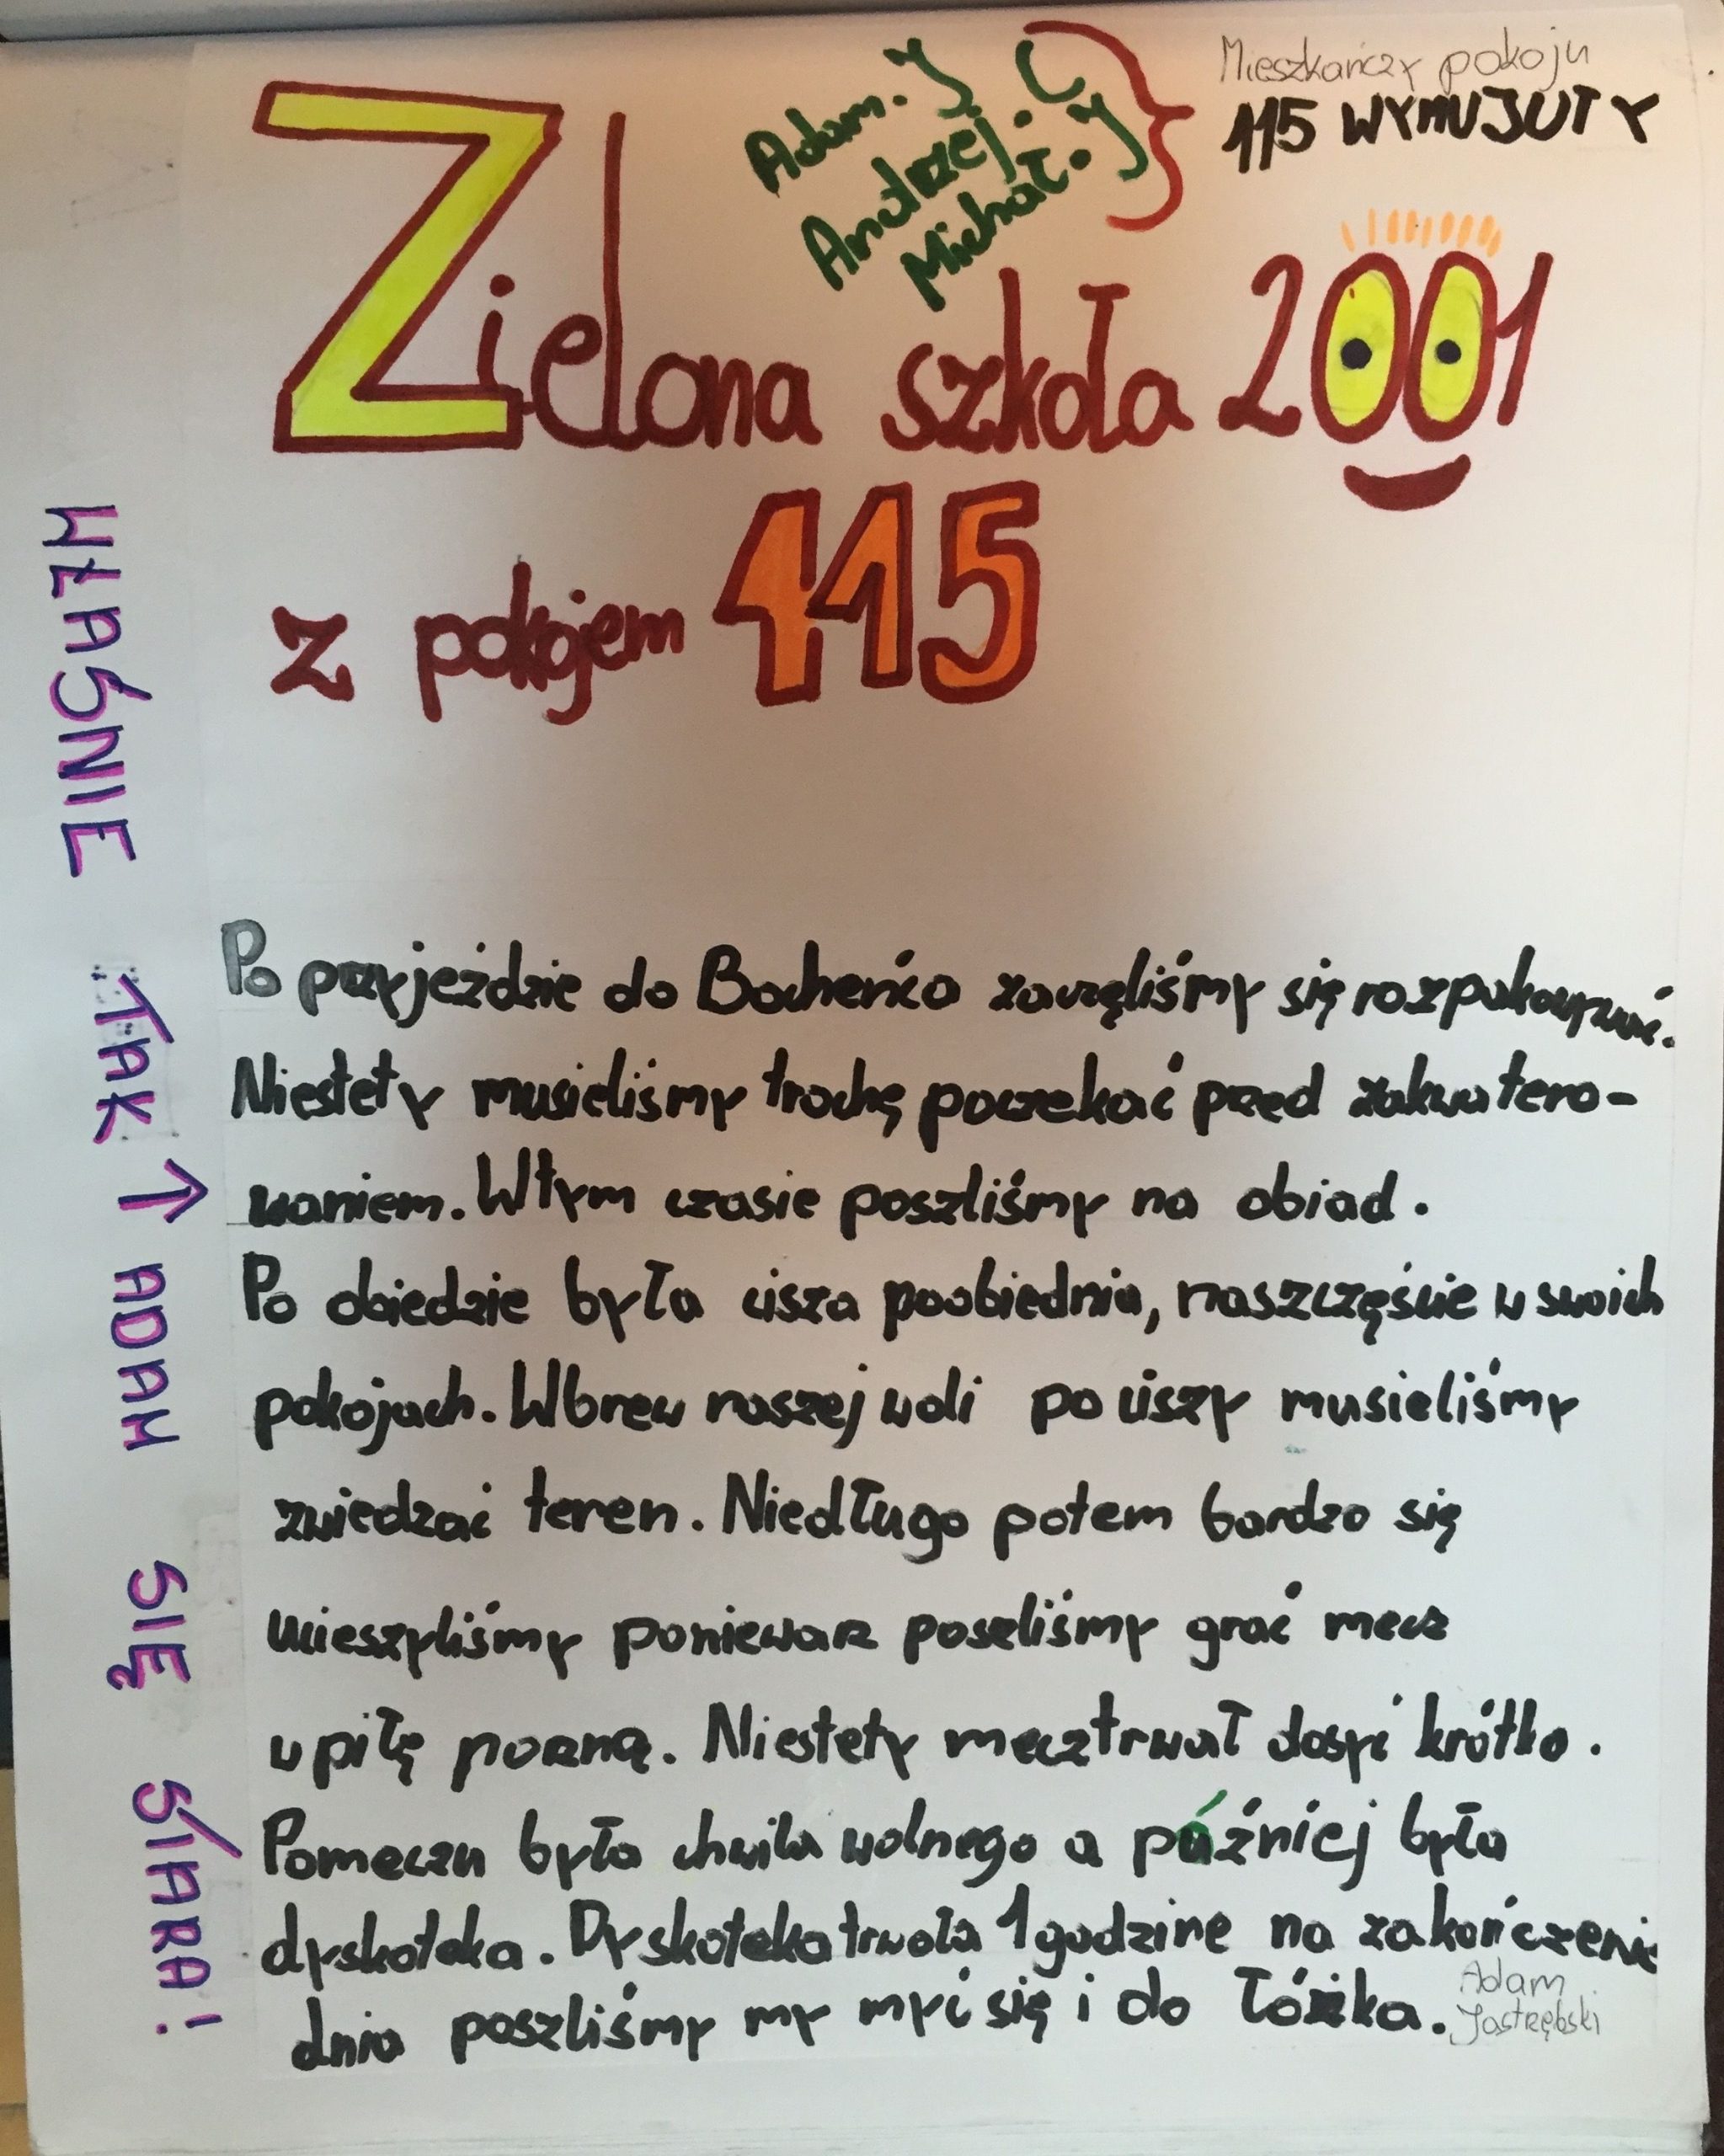 Mieszkańczy pokoju
115 WYMUJUTY
Adam. J
Andrzej. C
Michał. J
Zielona szkoła 2001
z pokojem 115
Po przyjeździe do Bocheńca zaczęliśmy się rozpakowywać.
Niestety musieliśmy trochę poczekać przed zakwatero-
waniem. Wtym czasie poszliśmy na obiad.
Po obiedzie była cisza poobiednia, naszczęście w swoich
pokojach. Wbrew naszej woli po ciszy musieliśmy
zwiedzać teren. Niedługo potem bardzo się
ucieszyliśmy poniewarz poszliśmy grać mecz
w piłę norzną. Niestety mecztrwał dosyć krótko.
Pomeczu była chwila wolnego a púźniej była
dyskoteka. Dyskotekatrwała 1 godzine na zakończenie
dnia poszliśmy my myć się i do łóżka.
Adam
Jastrzębski
WŁAŚNIE TAK ↑ ADAM SIĘ STARA!